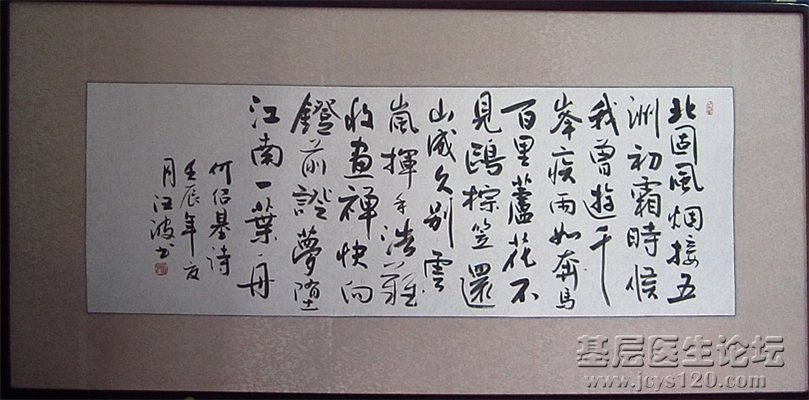 北固風烟接五
洲初霜時候
我曾遊千
峯疾雨如奔馬
百里蘆花不
見鷗椶笠還
山成久别雲
嵐揮手浩難
收畫禅快向
鐙前證夢墮
江南一葉舟
何绍基诗
壬辰年夏
月江波书
基层医生论坛
www.jcys120.com